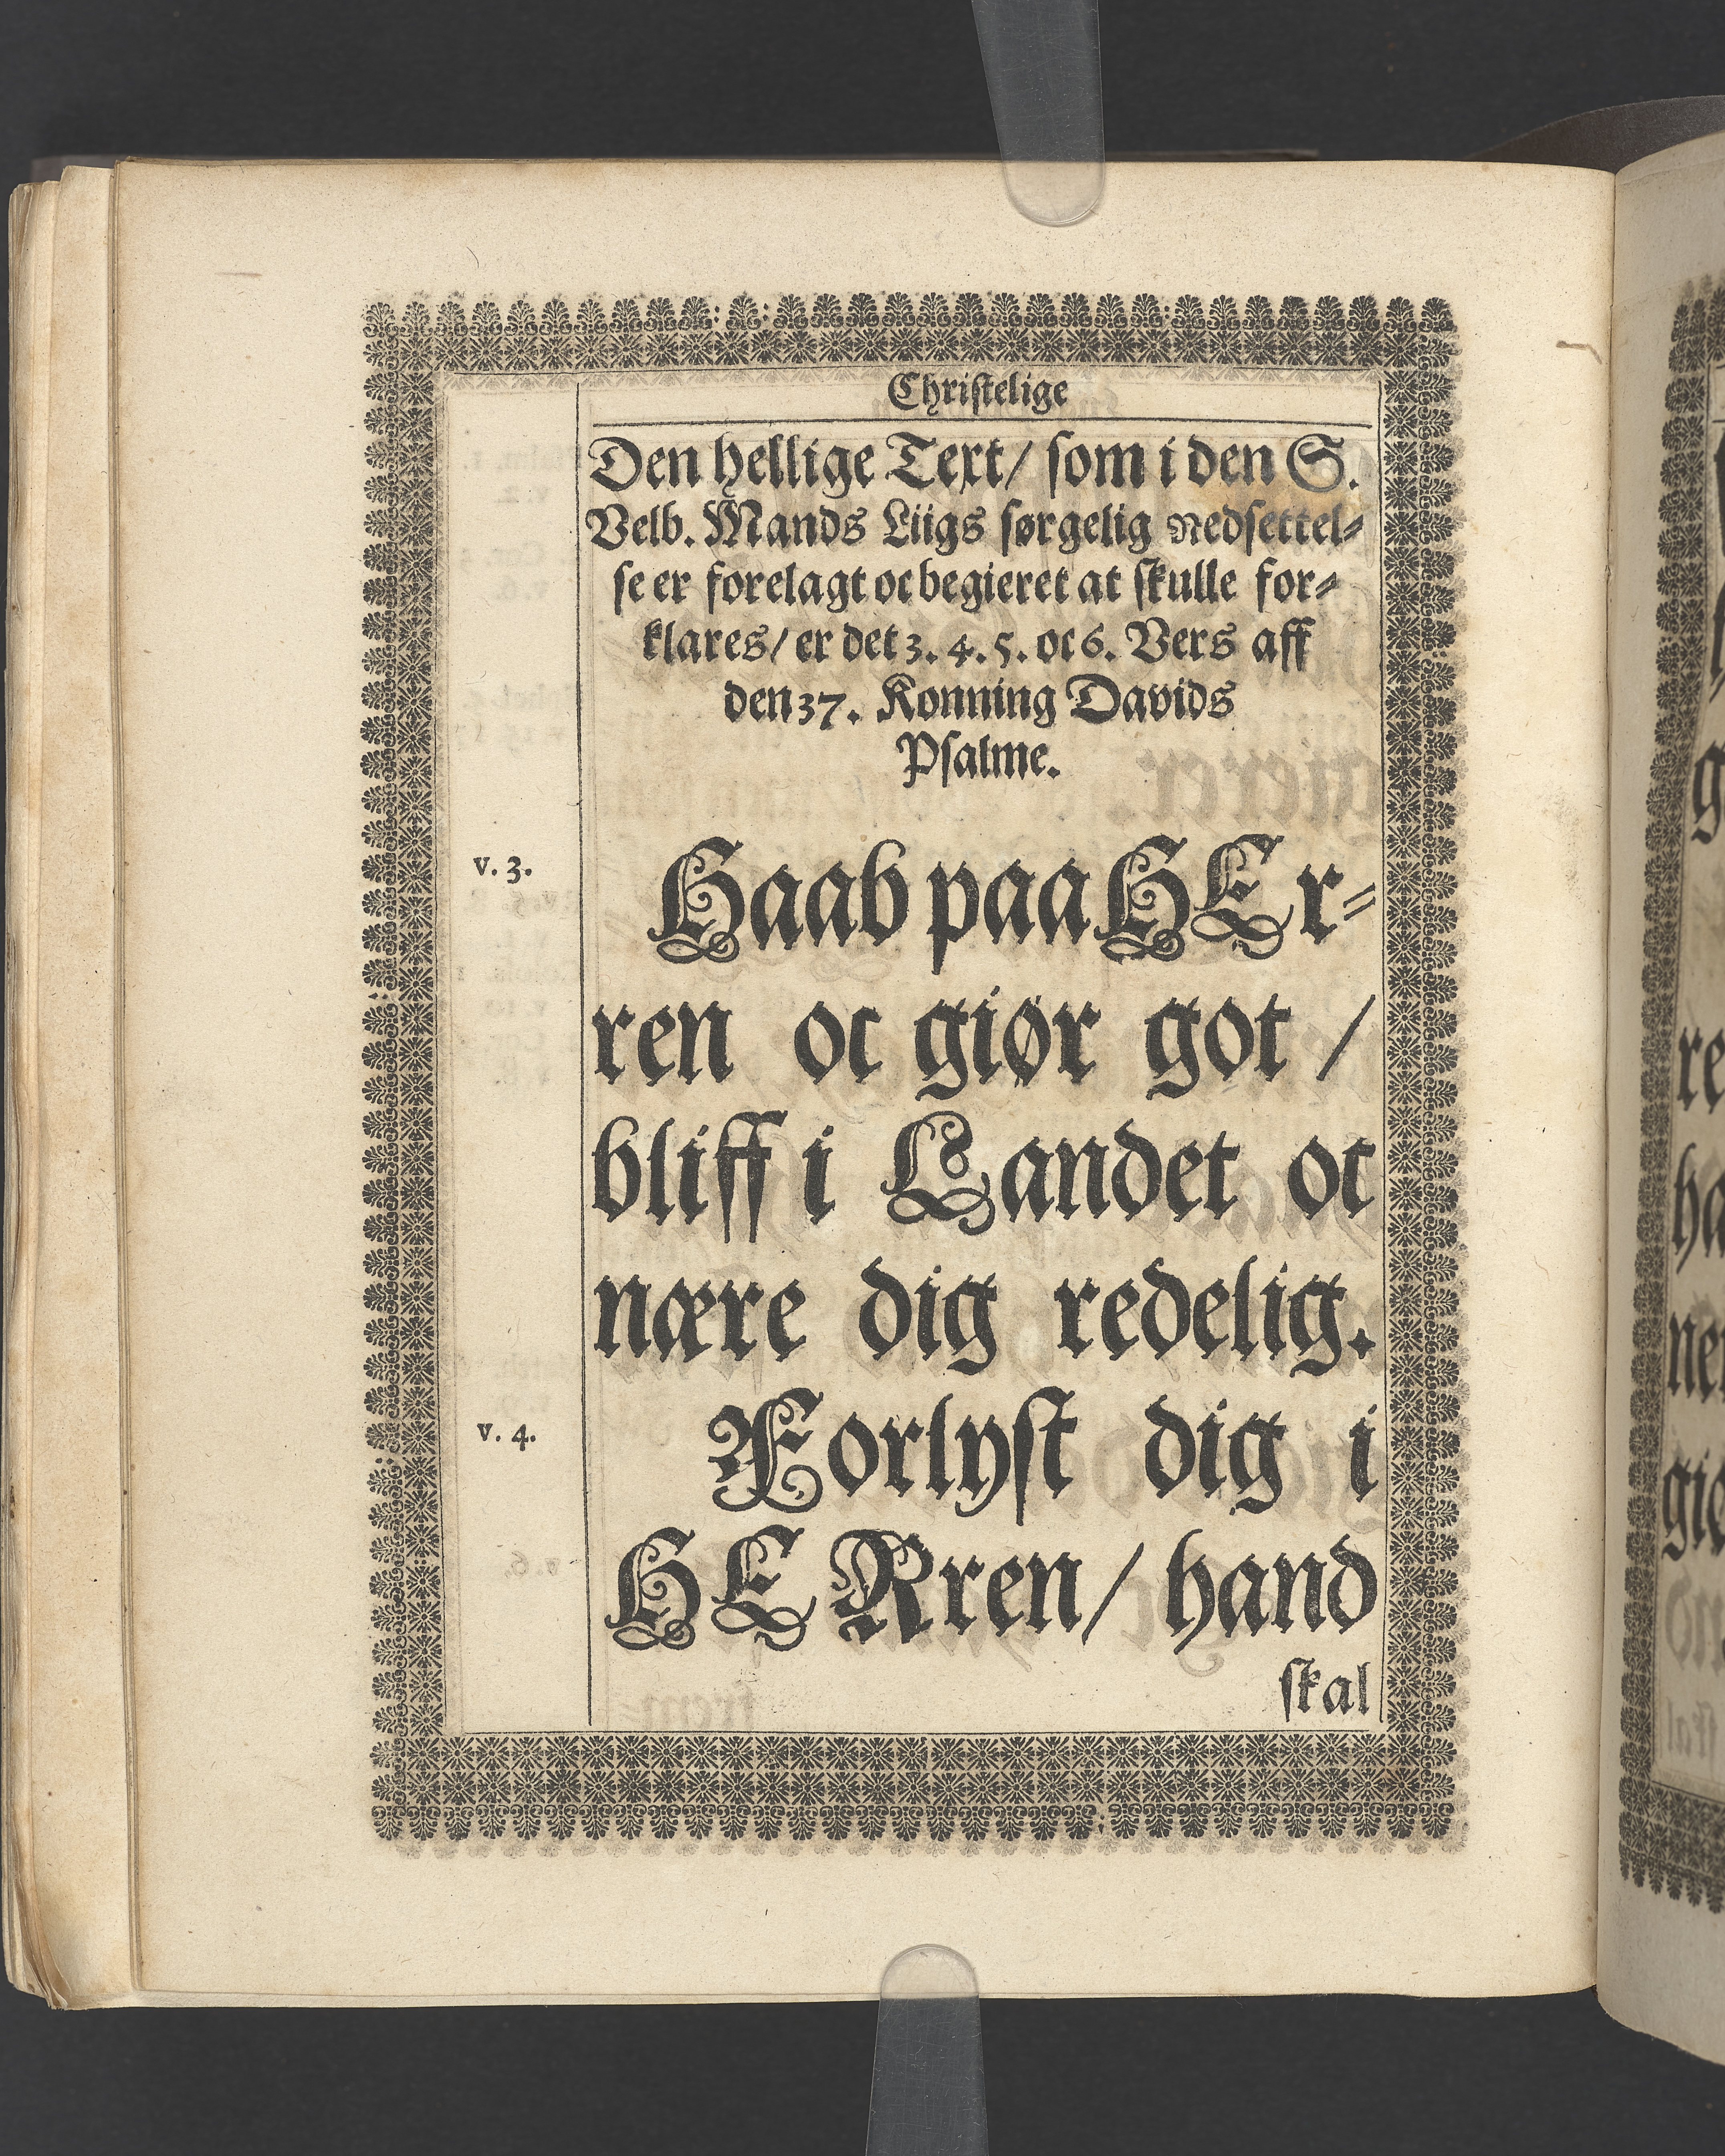 Christelige
Den hellige Text/ som i den S.
Velb. Mands Liigs sørgelig Nedsettel-
se er forelagt oc begieret at skulle for-
klares/ er det 3. 4. 5. oc 6. Vers aff
den 37. Konning Davids
Psalme.
v. 3.
Haab paa HEr-
ren oc giør got /
bliff i Landet oc
nære dig redelig.
v. 4.
Forlyst dig i
HERren/ hand
skal